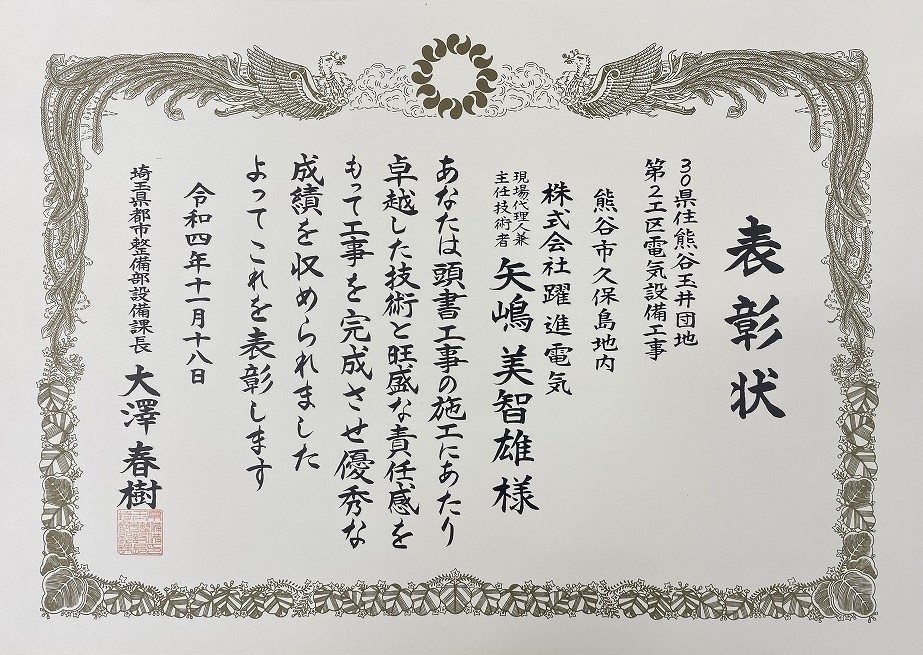 表彰状
30県住熊谷玉井団地
第2工区電気設備工事
熊谷市久保島地内
株式会社躍進電気
現場代理人兼
主任技術者
矢嶋美智雄様
あなたは頭書工事の施工にあたり
卓越した技術と旺盛な責任感を
もって工事を完成させ優秀な
成績を収められました
よってこれを表彰します
令和四年十一月十八日
埼玉県都市整備部設備課長 大澤春樹